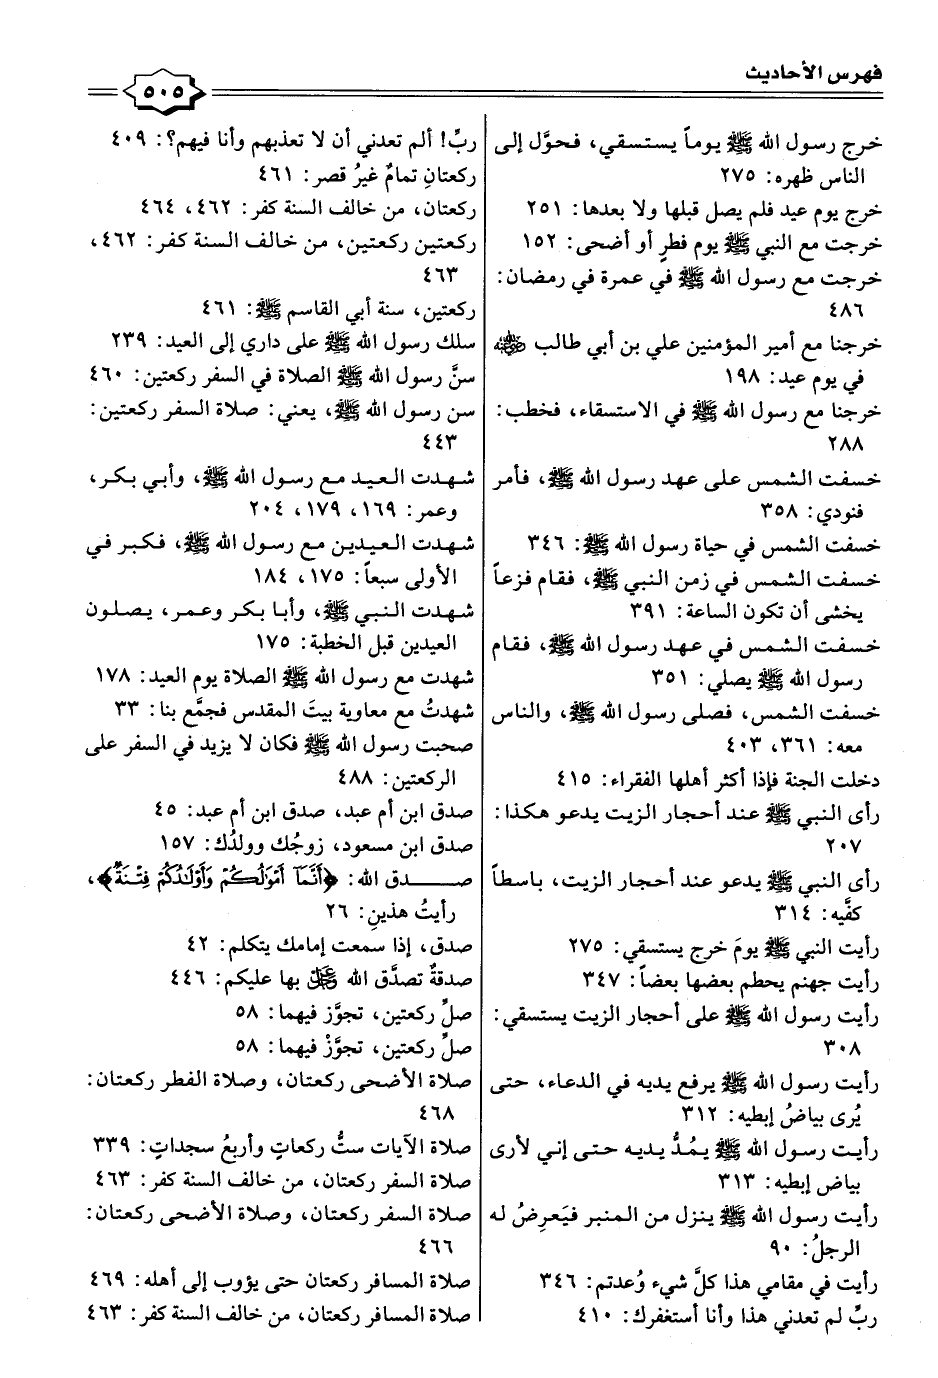 فهرس الأحاديث
٥٠٥
خرج رسول الله ﷺ يوماً يستسقي، فحوَّل إلى
الناس ظهره: ٢٧٥
خرج يوم عيد فلم يصل قبلها ولا بعدها: ٢٥١
خرجت مع النبي ﷺ يوم فطرٍ أو أضحى: ١٥٢
خرجت مع رسول الله ﷺ في عمرة في رمضان:
٤٨٦
خرجنا مع أمير المؤمنين علي بن أبي طالب رضي الله عنه
في يوم عيد: ١٩٨
خرجنا مع رسول الله ﷺ في الاستسقاء، فخطب:
٢٨٨
خسفت الشمس على عهد رسول الله ﷺ، فأمر
فنودي: ٣٥٨
خسفت الشمس في حياة رسول الله ﷺ: ٣٤٦
خسفت الشمس في زمن النبي ﷺ، فقام فزعاً
يخشى أن تكون الساعة: ٣٩١
خسفت الشمس في عهد رسول الله ﷺ، فقام
رسول الله ﷺ يصلي: ٣٥١
خسفت الشمس، فصلى رسول الله ﷺ، والناس
معه: ٣٦١، ٤٠٣
دخلت الجنة فإذا أكثر أهلها الفقراء: ٤١٥
رأى النبي ﷺ عند أحجار الزيت يدعو هكذا:
٢٠٧
رأى النبي ﷺ يدعو عند أحجار الزيت، باسطاً
كفَّيه: ٣١٤
رأيت النبي ﷺ يومَ خرج يستسقي: ٢٧٥
رأيت جهنم يحطم بعضها بعضاً: ٣٤٧
رأيت رسول الله ﷺ على أحجار الزيت يستسقي:
٣٠٨
رأيت رسول الله ﷺ يرفع يديه في الدعاء، حتى
يُرى بياضُ إبطيه: ٣١٢
رأيت رسول الله ﷺ يمُدُّ يديه حتى إني لأرى
بياض إبطيه: ٣١٣
رأيت رسول الله ﷺ ينزل من المنبر فيَعرِضُ له
الرجلُ: ٩٠
رأيت في مقامي هذا كلَّ شيء وُعدتم: ٣٤٦
ربِّ لم تعدني هذا وأنا أستغفرك: ٤١٠
ربِّ! ألم تعدني أن لا تعذبهم وأنا فيهم؟: ٤٠٩
ركعتانِ تمامٌ غيرُ قصر: ٤٦١
ركعتان، من خالف السنة كفر: ٤٦٢، ٤٦٤
ركعتين ركعتين، من خالف السنة كفر: ٤٦٢،
٤٦٣
ركعتين، سنة أبي القاسم ﷺ: ٤٦١
سلك رسول الله ﷺ على داري إلى العيد: ٢٣٩
سنَّ رسول الله ﷺ الصلاة في السفر ركعتين: ٤٦٠
سن رسول الله ﷺ، يعني: صلاة السفر ركعتين:
٤٤٣
شهدت العيد مع رسول الله ﷺ، وأبي بكر،
وعمر: ١٦٩، ١٧٩، ٢٠٤
شهدت العيدين مع رسول الله ﷺ، فكبر في
الأولى سبعاً: ١٧٥، ١٨٤
شهدت النبي ﷺ، وأبا بكر وعمر، يصلون
العيدين قبل الخطبة: ١٧٥
شهدت مع رسول الله ﷺ الصلاة يوم العيد: ١٧٨
شهدتُ مع معاوية بيتَ المقدس فجمَّع بنا: ٣٣
صحبت رسول الله ﷺ فكان لا يزيد في السفر على
الركعتين: ٤٨٨
صدق ابن أم عبد، صدق ابن أم عبد: ٤٥
صدق ابن مسعود، زوجُك وولدُك: ١٥٧
صدق الله: ﴿أَنَّمَآ أَمْوَٰلُكُمْ وَأَوْلَٰدُكُمْ فِتْنَةٌ﴾،
رأيتُ هذينِ: ٢٦
صدق، إذا سمعت إمامك يتكلم: ٤٢
صدقةٌ تصدَّق الله عز وجل بها عليكم: ٤٤٦
صلِّ ركعتين، تجوَّز فيهما: ٥٨
صلِّ ركعتين، تجوَّزْ فيهما: ٥٨
صلاة الأضحى ركعتان، وصلاة الفطر ركعتان:
٤٦٨
صلاة الآيات ستُّ ركعاتٍ وأربعُ سجداتٍ: ٣٣٩
صلاة السفر ركعتان، من خالف السنة كفر: ٤٦٣
صلاة السفر ركعتان، وصلاة الأضحى ركعتان:
٤٦٦
صلاة المسافر ركعتان حتى يؤوب إلى أهله: ٤٦٩
صلاة المسافر ركعتان، من خالف السنة كفر: ٤٦٣